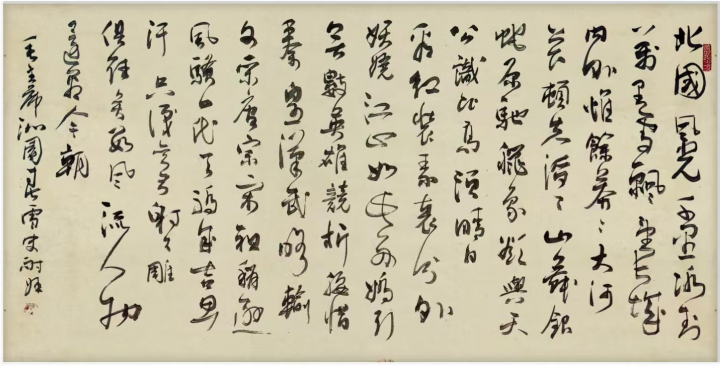 北國風光千里冰封
萬里雪飄望長城
內外惟餘莽々大河
上下頓失滔々山舞銀
蛇原馳蠟象欲與天
公試比高須晴日
看紅裝素裹分外
妖嬈江山如此多嬌引
無數英雄競折腰惜
秦皇漢武略輸
文采唐宗宋祖稍遜
風騷一代天驕成吉思
汗只識彎弓射大雕
俱往矣數風流人物
還看今朝
毛主席沁園春雪